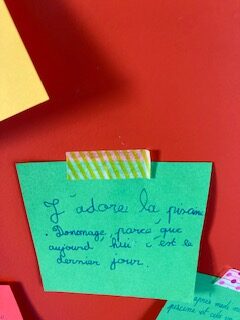 J'adore la piscine
. Donomage, parce que
aujourd'hui c'est le
dernier jour.
apres
piscine et